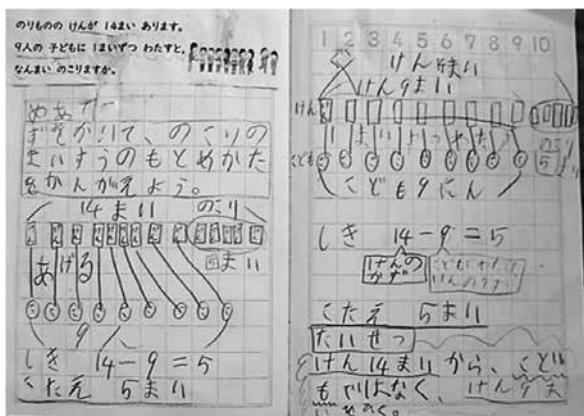 のりものの けんが 14まい あります。
9人の 子どもに 1まいずつ わたすと、
なんまい のこりますか。
めあて
ずをかいて、のこりの
まいすうのもとめかた
をかんがえよう。
14まい のこり
あげる
まい
9
しき 14-9=5
こたえ 5まい
1 2 3 4 5 6 7 8 9 10
けん
けん9まい
けん
こども
のこり
5
こども9にん
しき 14-9=5
けんの
かず
こたえ 5まい
たいせつ
けん14まいから、こど
もではなく、けん9ま